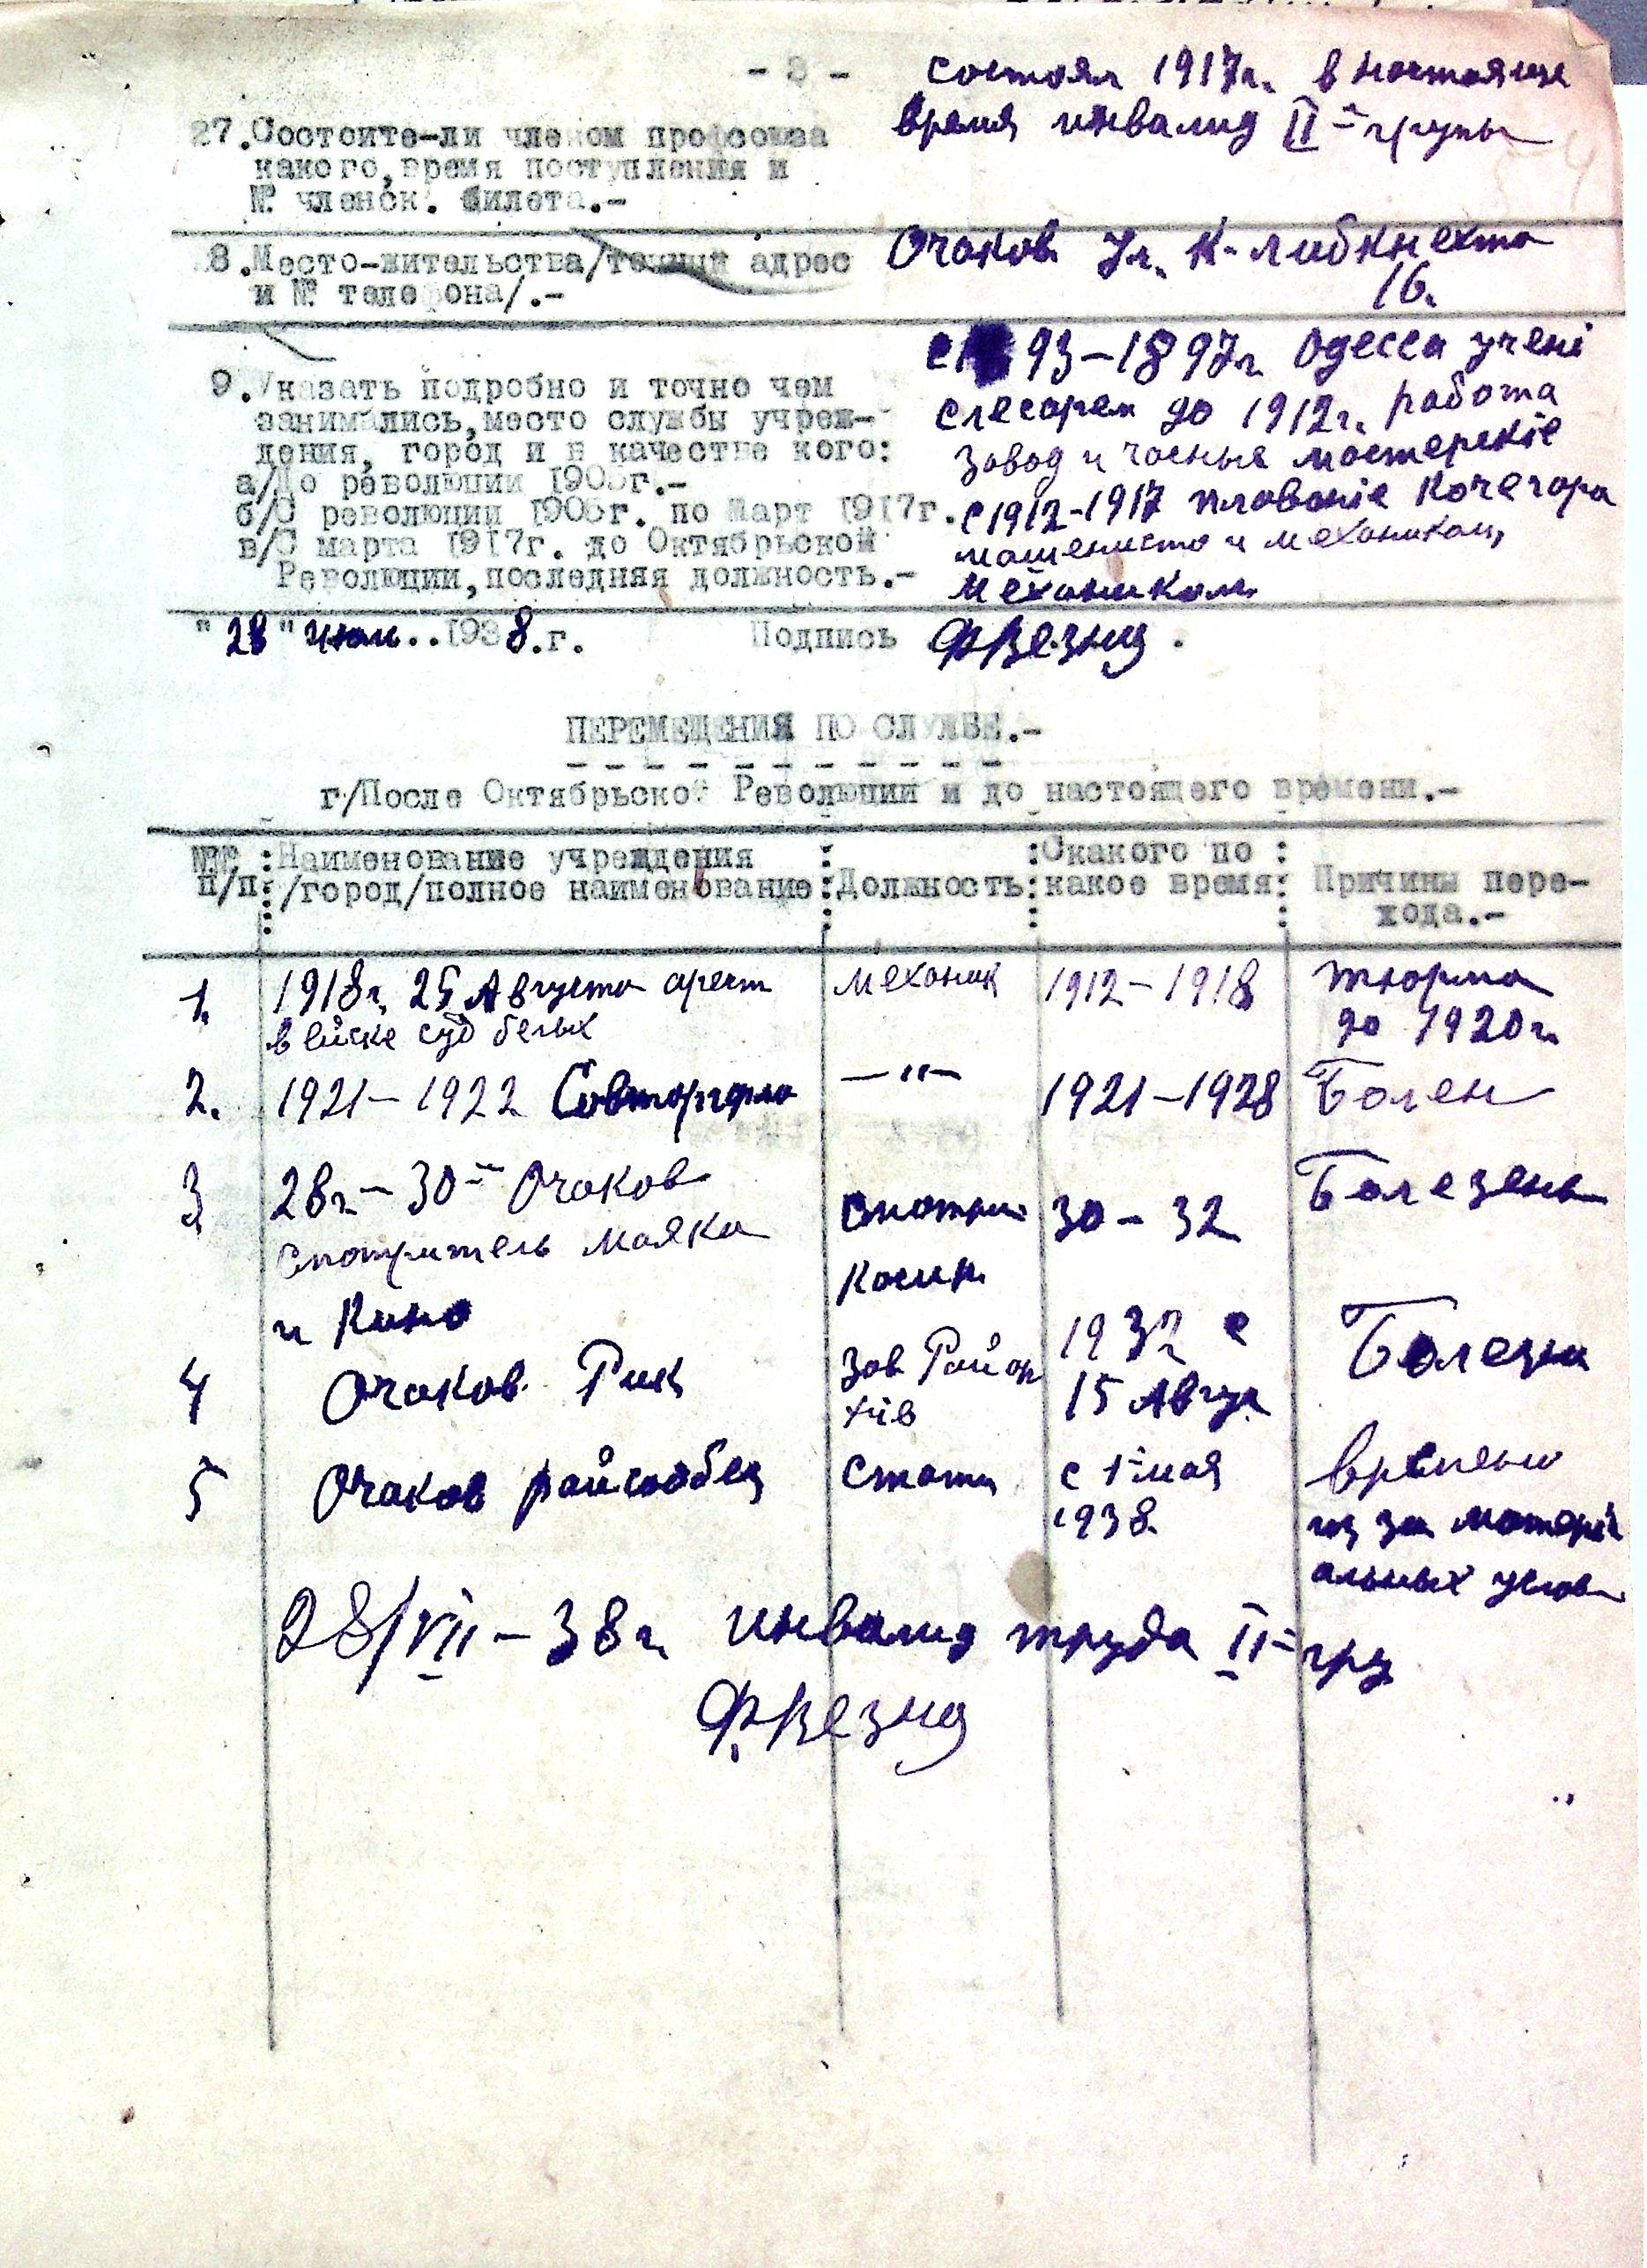 - 3 -
состоял 1917г. в ностояще
27.Состоите-ли членом профсоюза
время инвалид II-групы
какого,время поступления и
№ членск. билета.-
8.Место-жительства/точный адрес
Очаков Ул. К-либкнехта
и № телефона/.-
16.
93-1897г. Одесса учені
9.Указать подробно и точно чем
слесарем до 1912г. работа
занимались,место службы учреж-
завод и часные мастерскіе
дения, город и в качестве кого:
а/До революции 1905г.-
с1912-1917 плованіе Кочегара
б/С революции 1905г. по Март 1917г.
машениста и механиком,
в/С марта 1917г. до Октябрьской
Революции,последняя должность.-
Механиком.
"28" июл..1938.г. Подпись
ПЕРЕМЕЩЕНИЯ ПО СЛУЖБЕ.-
г/После Октябрьской Революции и до настоящего времени.-
№№ :Наименование учреждения : :Скакого по :
п/п:/город/полное наименование:Должность:какое время: Причины пере-
хода.-
1. 1918г. 25 Августа арест механик 1912-1918 тюрма
в суд белых до 1920г.
2. 1921-1922 Совторгфло —"— 1921-1928 Болен
3 28г.-30- Очаков 30-32 Болезень
Смотритель Маяка Смотри
и Кино Касир.
4 Очаков Рик Зав Рай ар 1932 с Болезн
хив 15 Авгус
5 Очаков с 1-мая времено
1938. из за матері
альных услов
28/VII-38г. инвалид труда II-гру